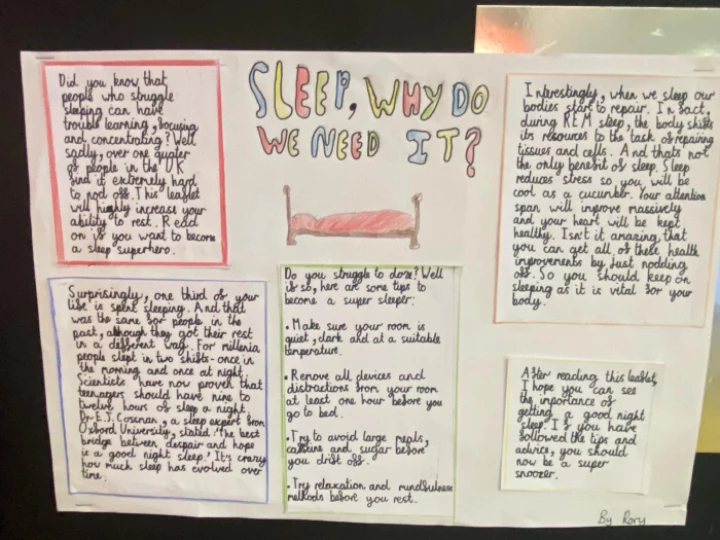 SLEEP, WHY DO
WE NEED IT?
Did you know that
people who struggle
sleeping can have
trouble learning, focusing
and concentrating? Well
sadly, over one quater
of people in the UK
find it extremely hard
to nod off. This leaflet
will highly increase your
ability to rest. Read
on if you want to become
a sleep superhero.
Surprisingly, one third of your
life is spent sleeping. And that
was the same for people in the
past, although they got their rest
in a different way. For millenia
people slept in two shifts - once in
the morning and once at night.
Scientists have now proven that
teenagers should have nine to
twelve hours of sleep a night.
Dr E.J. Cosman, a sleep expert from
Oxford University, stated: 'The best
bridge between despair and hope
is a good night sleep.' It's crazy
how much sleep has evolved over
time.
Do you struggle to doze? Well
if so, here are some tips to
become a super sleeper:
• Make sure your room is
quiet, dark and at a suitable
temperature.
• Remove all devices and
distractions from your room
at least one hour before you
go to bed.
• Try to avoid large meals,
caffeine and sugar before
you drift off.
• Try relaxation and mindfulness
methods before you rest.
Interestingly, when we sleep our
bodies start to repair. In fact,
during R.E.M sleep, the body shifts
its resources to the task of repairing
tissues and cells. And that's not
the only benefit of sleep. Sleep
reduces stress so you will be
cool as a cucumber. Your attention
span will improve massively
and your heart will be kept
healthy. Isn't it amazing that
you can get all of these health
improvements by just nodding
off. So you should keep on
sleeping as it is vital for your
body.
After reading this leaflet,
I hope you can see
the importance of
getting a good night
sleep. If you have
followed the tips and
advice, you should
now be a super
snoozer.
By Rory